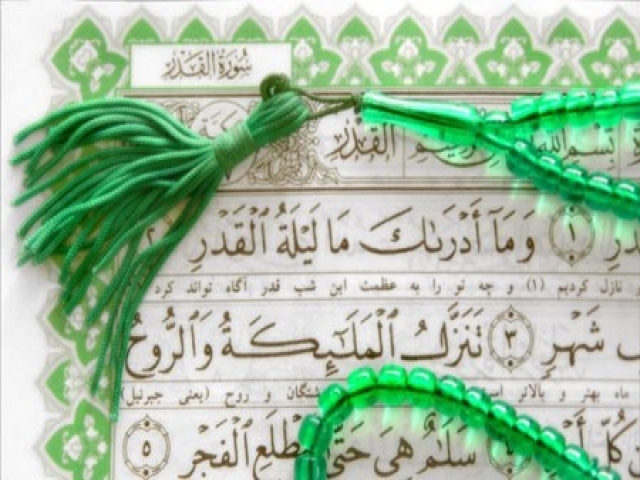 سُورَةُ القَدْرِ
بِسْمِ اللهِ القَدْرِ
١ وَمَآ أَدْرَىٰكَ مَا لَيْلَةُ ٱلْقَدْرِ ٢
نازل کردیم (١) و چه تو را به عظمت این شب قدر آگاه تواند کرد
شَهْرٍ ٣ تَنَزَّلُ ٱلْمَلَـٰٓئِكَةُ وَٱلرُّوحُ
ماه بهتر و بالاتر و روح (یعنی جبرئیل)
كُلِّ سَلَـٰمٌ هِىَ حَتَّىٰ مَطْلَعِ ٱلْفَجْرِ ٥